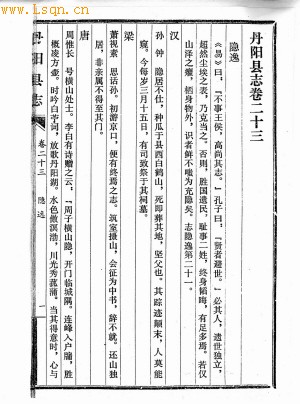 www.Lsqn.cn
丹阳县志卷二十三
隐逸
《易》曰，『不事王侯，高尚其志。』孔子曰，『贤者避世。』必其人，遗世独立，
超然尘埃之表，乃克当之。否则，胜国遗民，耻事二姓，终身韬晦，有足多焉。若仅
山泽之癯，栖身物外，识者鲜不嗤为充隐矣。志隐逸第二十一。
汉
孙 钟 隐居不仕，种瓜于县西白鹤山，死即葬其地，坚父也。其踪迹颠末，人莫能
窥。今每岁三月十五日，有司致祭于其祠墓。
梁
萧视素 思话孙。初游京口，便有终焉之志。筑室摄山，会征为中书，辞不就。还山独
居，非亲属不得至其门。
唐
周惟长 号横山处士。李白有诗赠之云，『周子横山隐，开门临城隅。连峰入户牖，胜
概凌方壶。时吟白苧词，放歌丹阳湖。水色傲溟渤，川光秀菰蒲。当其得意时，心与
丹阳县志
卷二十三
隐逸
一